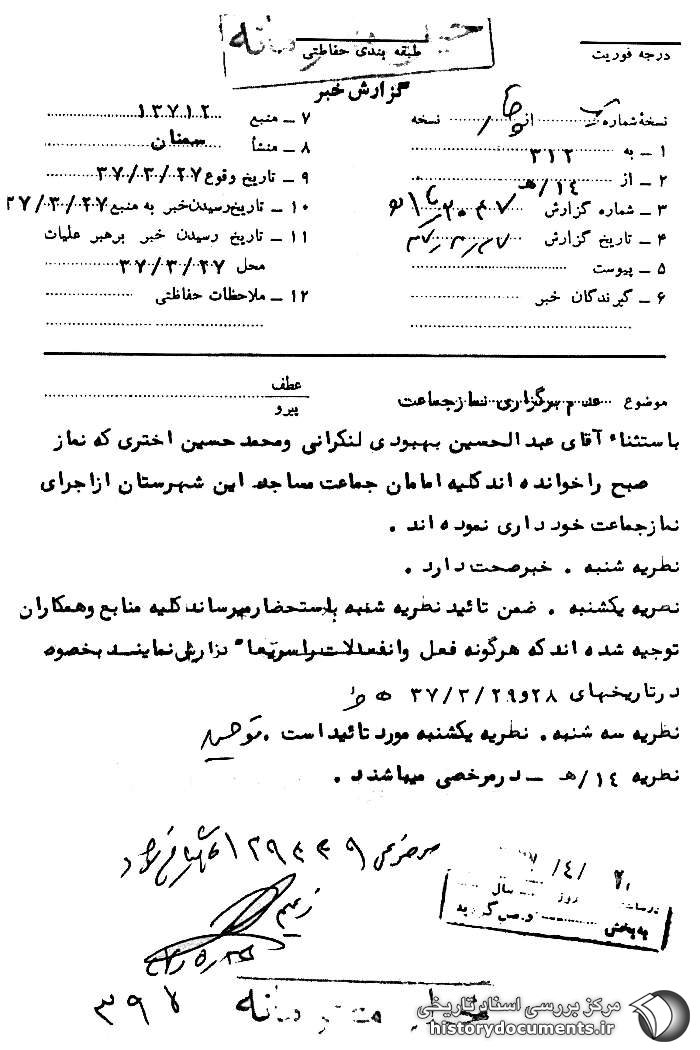 خیلی محرمانه
طبقه بندی حفاظتی
درجه فوریت
گزارش خبر
نسخهٔ شماره از نسخه
۱ ـ به ۳۱۲
۲ ـ از ۱۴/ هـ
۳ ـ شماره گزارش
۴ ـ تاریخ گزارش
۵ ـ پیوست
۶ ـ گیرندگان خبر
۷ ـ منبع ۱۳۷۱۲
۸ ـ منشأ سمنان
۹ ـ تاریخ وقوع ۳۷/۳/۲۷
۱۰ ـ تاریخ رسیدن خبر به منبع ۳۷/۳/۲۷
۱۱ ـ تاریخ رسیدن خبر برهبر عملیات
محل ۳۷/۳/۲۷
۱۲ ـ ملاحظات حفاظتی
موضوع عدم برگزاری نماز جماعت
عطف
پیرو
باستثناء آقای عبدالحسین بهبودی لنکرانی ومحمد حسین اختری که نماز
صبح را خوانده اند کلیه امامان جماعت مساجد این شهرستان از اجرای
نماز جماعت خود داری نموده اند .
نظریه شنبه . خبر صحت دارد .
نظریه یکشنبه . ضمن تائید نظریه شنبه باستحضار میرساند کلیه منابع وهمکاران
توجیه شده اند که هرگونه فعل وانفعالات را سریعا" گزارش نمایند بخصوص
در تاریخهای ۲۸و۳۷/۳/۲۹
نظریه سه شنبه . نظریه یکشنبه مورد تائید است .
نظریه ۱۴/ هـ ـ در مرخصی میباشند .
۲۹۴۴۹
زعیم
۲۰ /۴/
روز سال
به بخش رسید
خیلی محرمانه
۳۹۷
مرکز بررسی اسناد تاریخی
historydocuments.ir